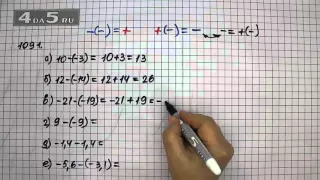 4DA5.RU
-(-) = +   +(-) = -   - = +(-)
1091.
а) 10-(-3) = 10+3 = 13
б) 12-(-14) = 12+14 = 26
в) -21-(-19) = -21+19 = -
г) 9-(-9) =
д) -1,4-1,4 =
е) -5,6-(-3,1) =